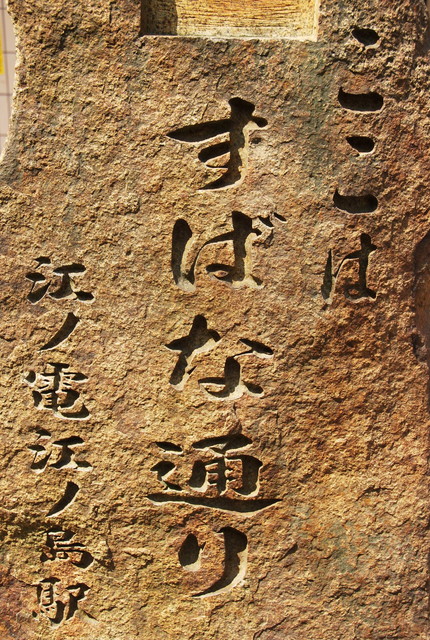 ここは
すばな通り
江ノ電江ノ島駅